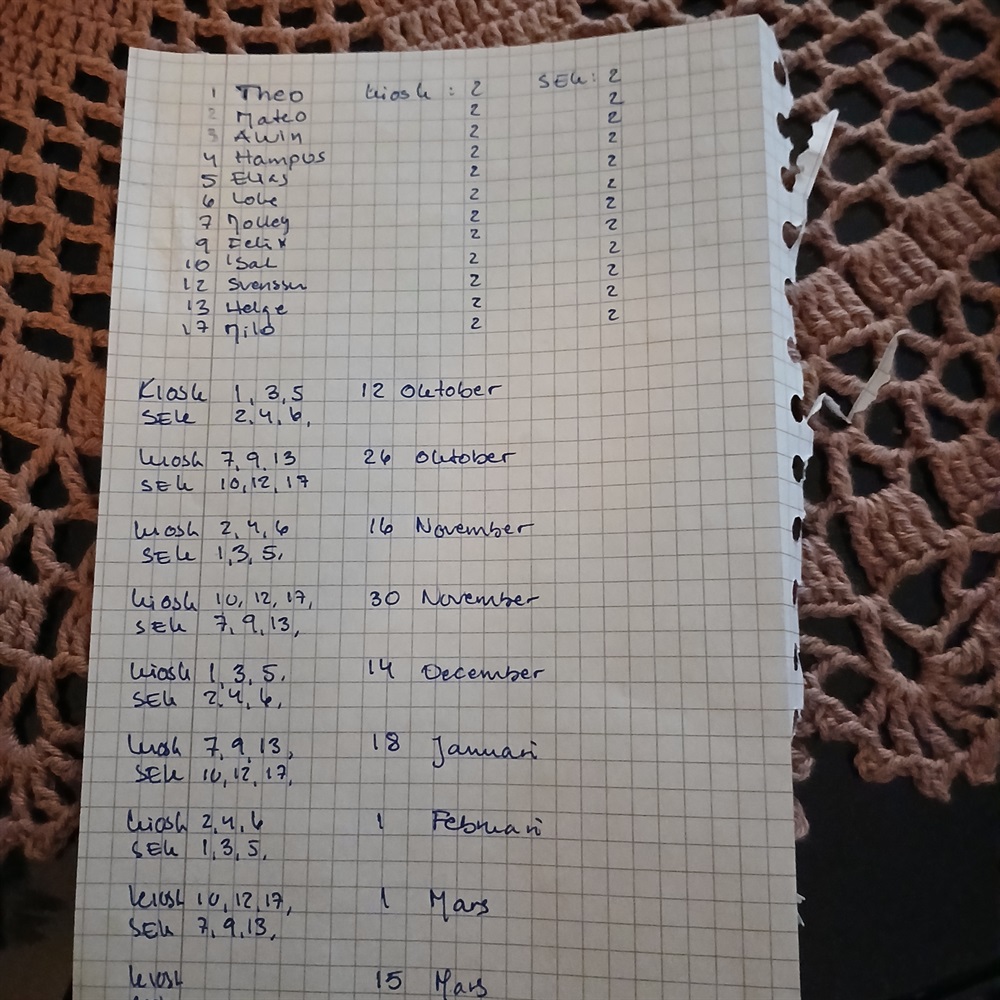 1 Theo Kiosk : 2 SEK: 2
2 Mateo 2 2
3 Alvin 2 2
4 Hampus 2 2
5 Elias 2 2
6 Love 2 2
7 Molley 2 2
9 Felix 2 2
10 Isac 2 2
12 Svensson 2 2
13 Helge 2 2
17 Milo 2 2
Kiosk 1, 3, 5 12 Oktober
SEK 2, 4, 6,
Kiosk 7, 9, 13 26 Oktober
SEK 10, 12, 17
Kiosk 2, 4, 6 16 November
SEK 1, 3, 5,
Kiosk 10, 12, 17, 30 November
SEK 7, 9, 13,
Kiosk 1, 3, 5, 14 December
SEK 2, 4, 6,
Kiosk 7, 9, 13, 18 Januari
SEK 10, 12, 17,
Kiosk 2, 4, 6 1 Februari
SEK 1, 3, 5,
Kiosk 10, 12, 17, 1 Mars
SEK 7, 9, 13,
Kiosk 15 Mars